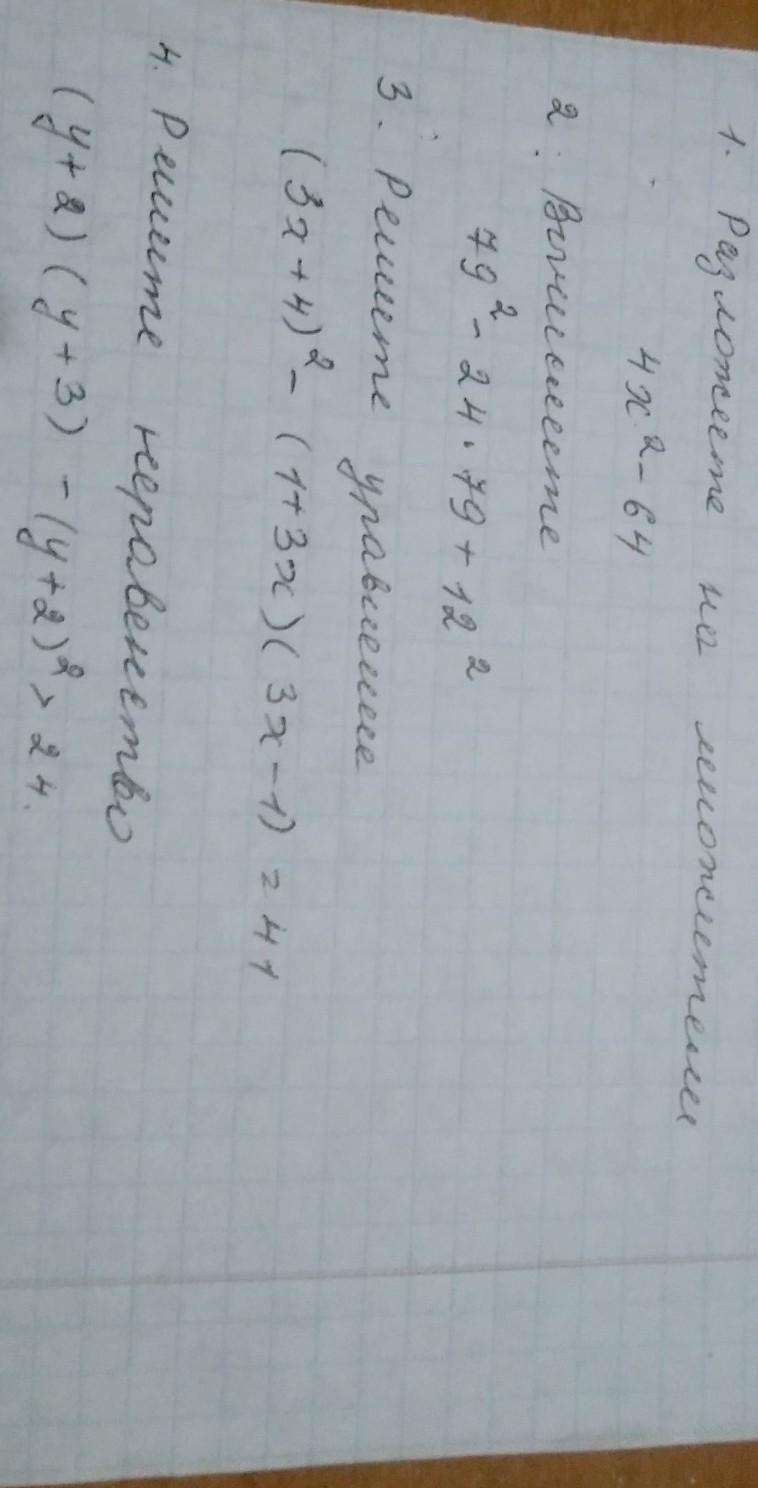 1. Разложите на множители
4x² - 64
2. Вычислите
79² - 24 · 79 + 12²
3. Решите уравнение
(3x + 4)² - (1 + 3x)(3x - 1) = 41
4. Решите неравенство
(y + 2)(y + 3) - (y + 2)² > 24.